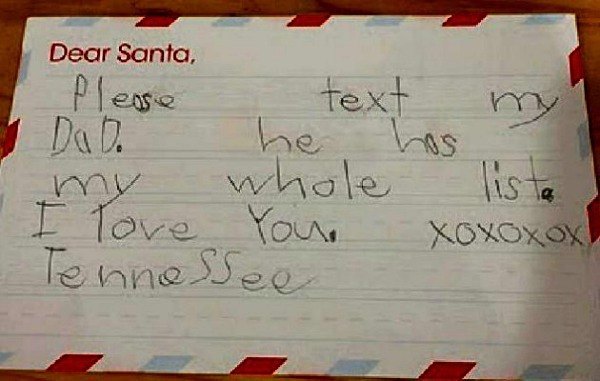 Dear Santa,
Please text my
DaD. he has
my whole list.
I love You. xoxoxox
TennesSee